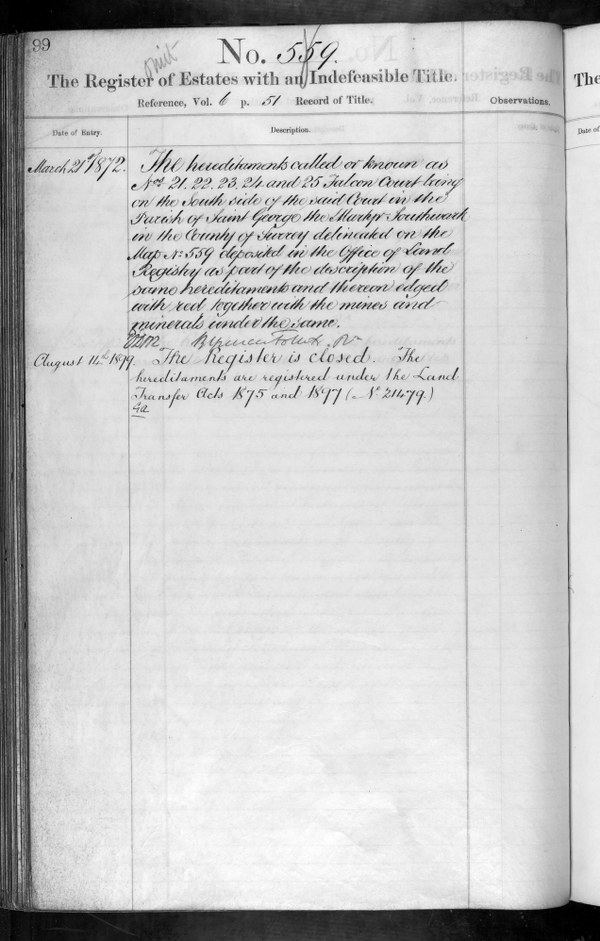 99
No. 559.
omit
The Register of Estates with an Indefeasible Title.
Reference, Vol. 6 p. 51 Record of Title.
Observations.
Date of Entry.
Description.
March 21st 1872.
The hereditaments called or known as
Nos. 21. 22. 23. 24 and 25 Falcon Court being
on the South side of the said Court in the
Parish of Saint George the Martyr Southwark
in the County of Surrey delineated on the
Map No. 559 deposited in the Office of Land
Registry as part of the description of the
same hereditaments and thereon edged
with red together with the mines and
minerals under the same.
August 14th 1899.
The Register is closed. The
hereditaments are registered under the Land
Transfer Acts 1875 and 1897 (No 21479.)
The
Date of